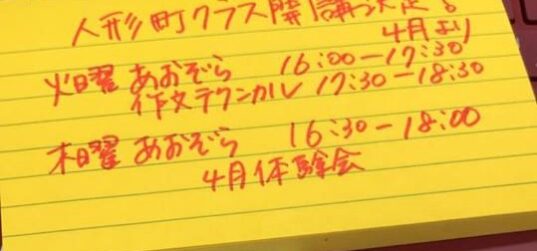 人形町クラス開講決定!
4月より
火曜 あおぞら 16:00-17:30
作文テクニカル 17:30-18:30
木曜 あおぞら 16:30-18:00
4月体験会